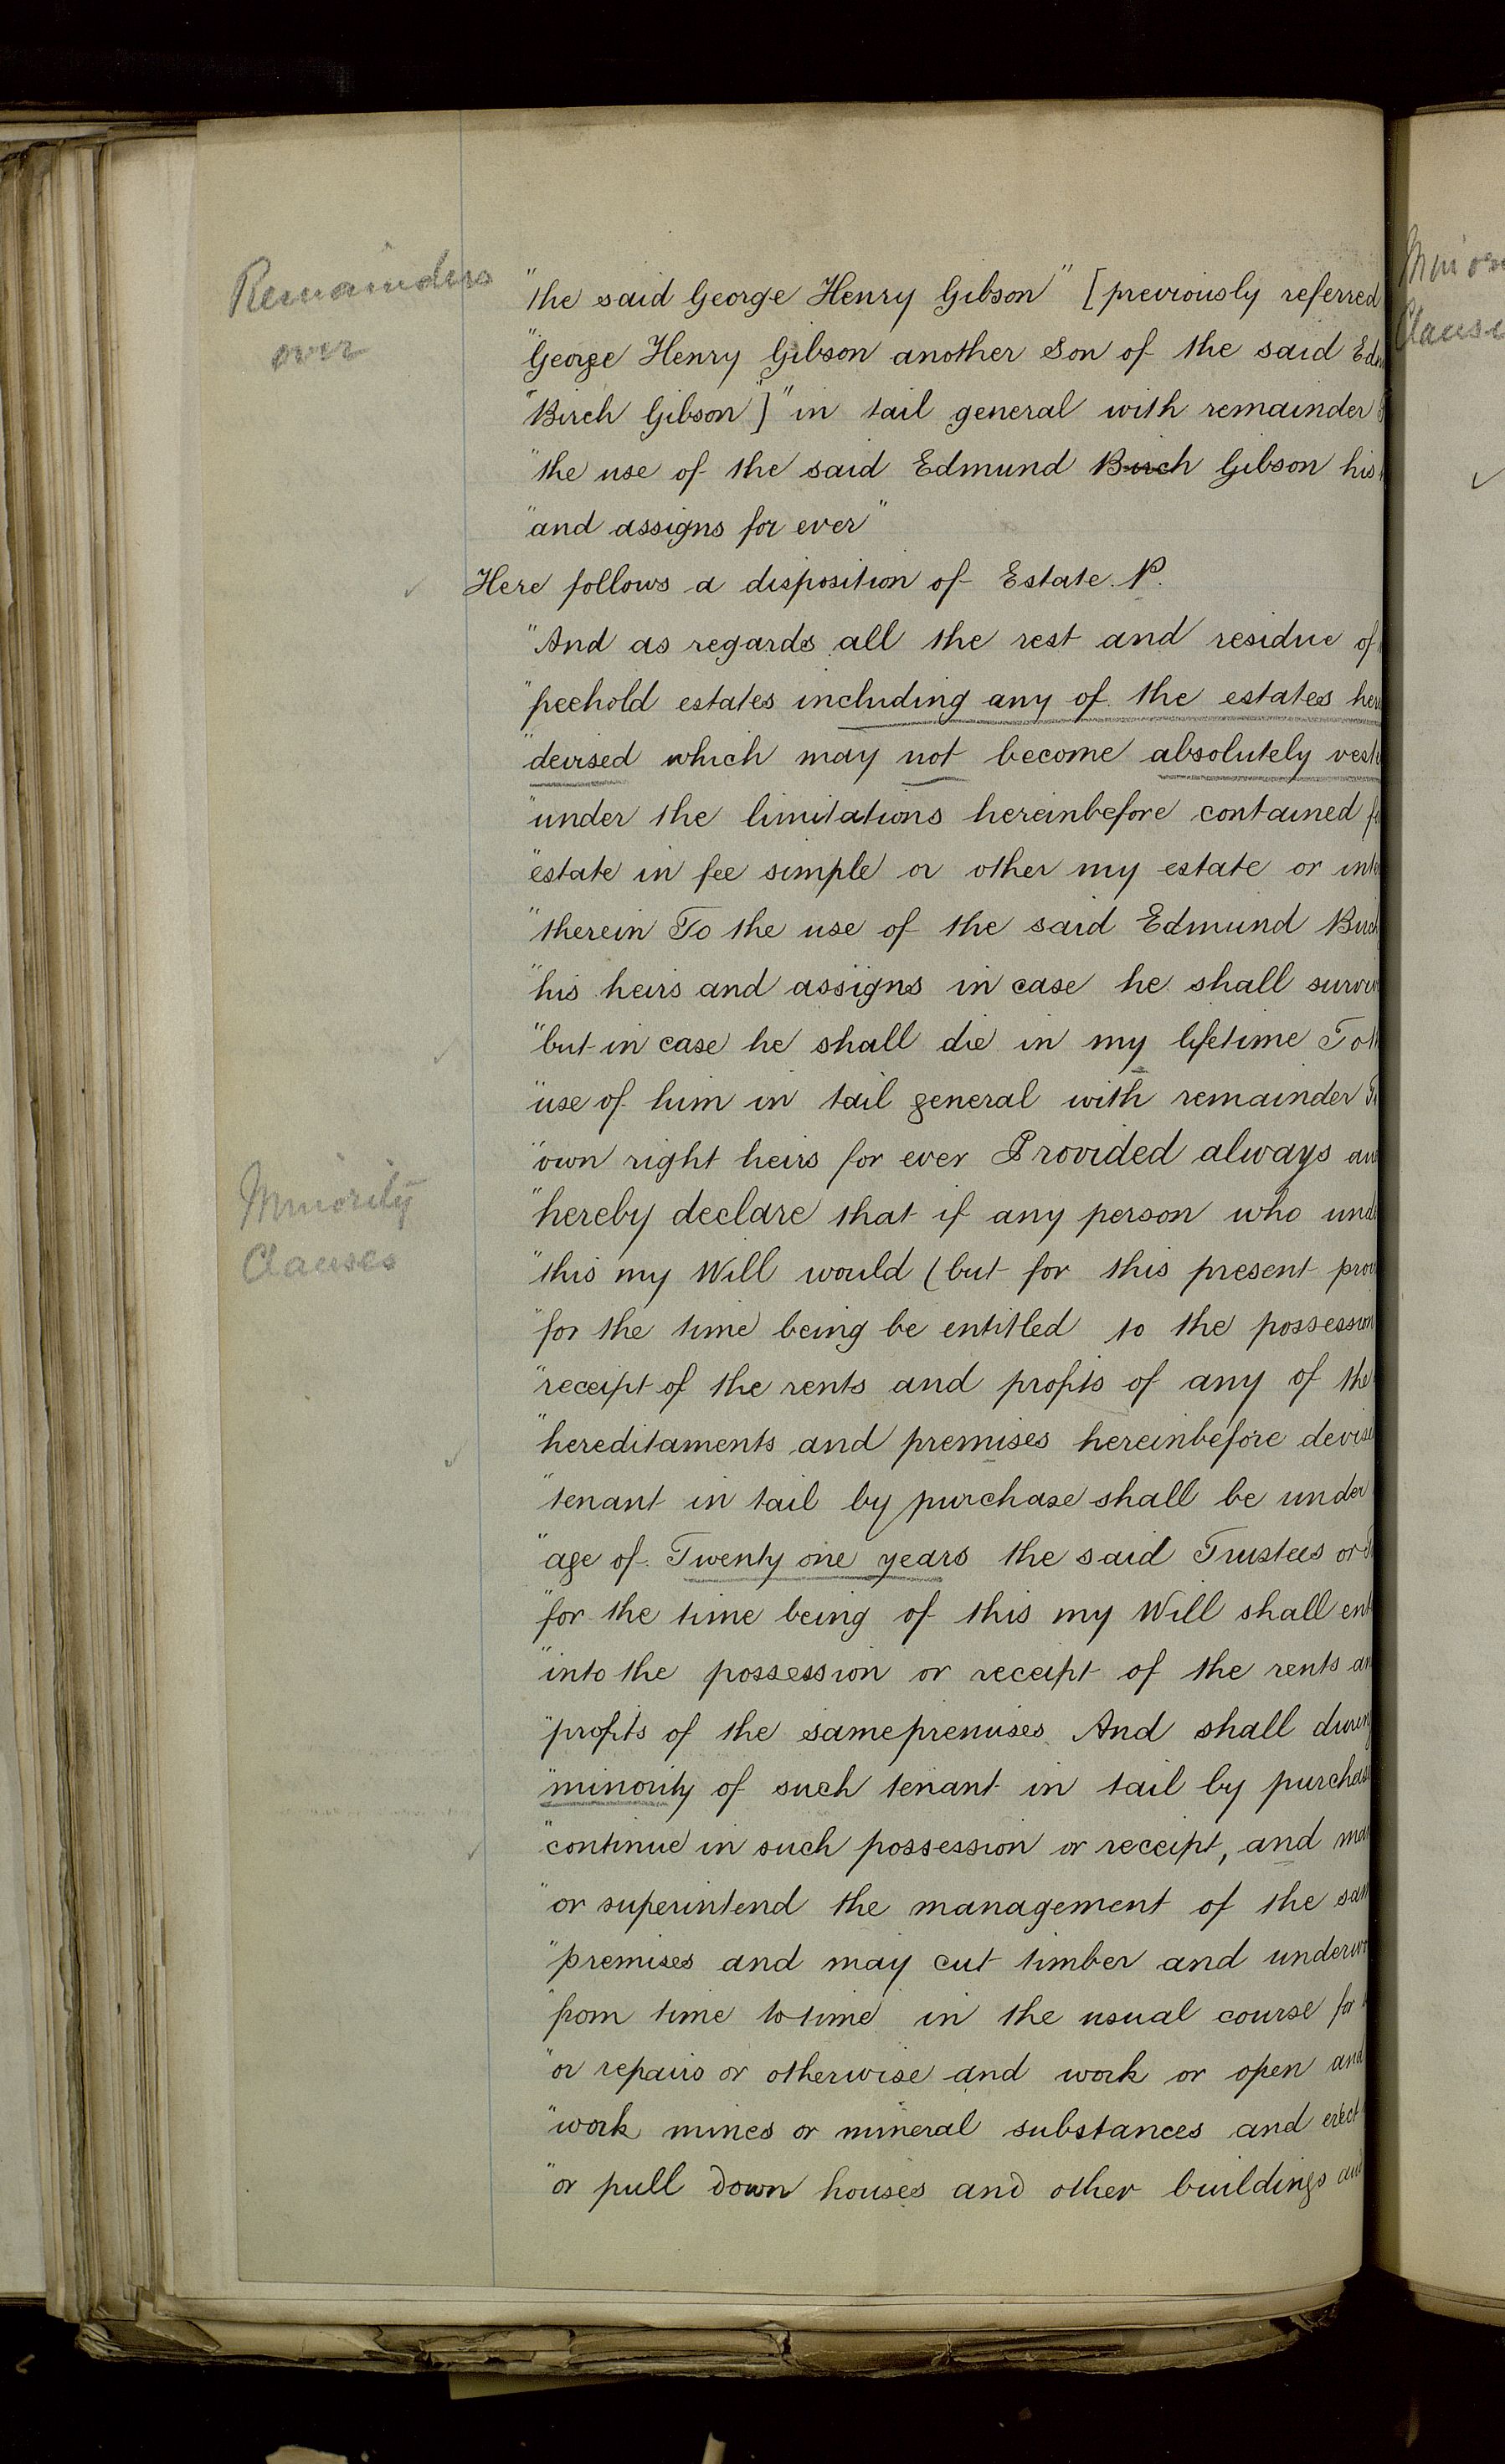 Remainders
over
"the said George Henry Gibson" [previously referred
"George Henry Gibson another Son of the said Edm
"Birch Gibson"] "in tail general with remainder
"the use of the said Edmund Birch Gibson his
"and assigns for ever"
Here follows a disposition of Estate. P.
"And as regards all the rest and residue of
"freehold estates including any of the estates her
"devised which may not become absolutely veste
"under the limitations hereinbefore contained f
"estate in fee simple or other my estate or inte
"therein To the use of the said Edmund Birch
"his heirs and assigns in case he shall surviv
"but in case he shall die in my lifetime To th
"use of him in tail general with remainder T
"own right heirs for ever Provided always an
Minority
Clauses
"hereby declare that if any person who unde
"this my Will would (but for this present prov
"for the time being be entitled to the possession
"receipt of the rents and profits of any of the
"hereditaments and premises hereinbefore devise
"tenant in tail by purchase shall be under
"age of Twenty one years the said Trustees or T
"for the time being of this my Will shall ent
"into the possession or receipt of the rents an
"profits of the same premises And shall during
"minority of such tenant in tail by purchas
"continue in such possession or receipt, and man
"or superintend the management of the sam
"premises and may cut timber and underwo
"from time to time in the usual course for
"or repairs or otherwise and work or open and
"work mines or mineral substances and erect
"or pull down houses and other buildings and
Minor
Clause